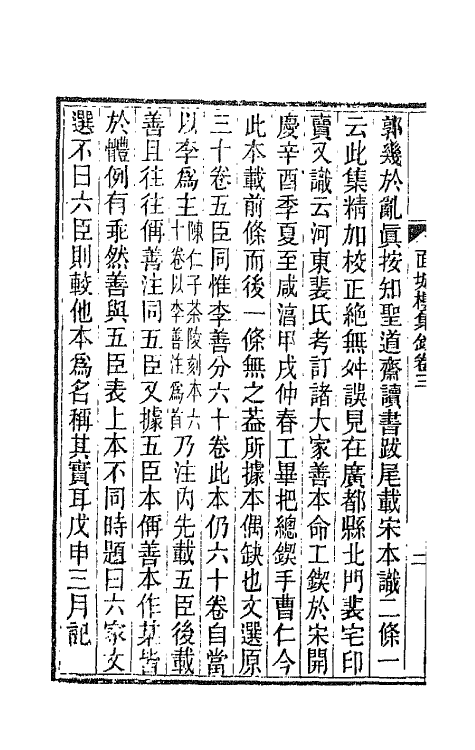 郭幾於亂眞按知聖道齋讀書跋尾載宋本識二條一
云此集精加校正絕無舛誤見在廣都縣北門裴宅印
賣又識云河東裴氏考訂諸大家善本命工鍥於宋開
慶辛酉季夏至咸淳甲戌仲春工畢把總鍥手曹仁今
此本載前條而後一條無之葢所據本偶缺也文選原
三十卷五臣同惟李善分六十卷此本仍六十卷自當
以李爲主陳仁子茶陵刻本六十卷以李善注爲首乃注內先載五臣後載
善且往往偁善注同五臣又據五臣本偁善本作某皆
於體例有乖然善與五臣表上本不同時題曰六家文
選不曰六臣則較他本爲名稱其實耳戊申三月記
卷三
二